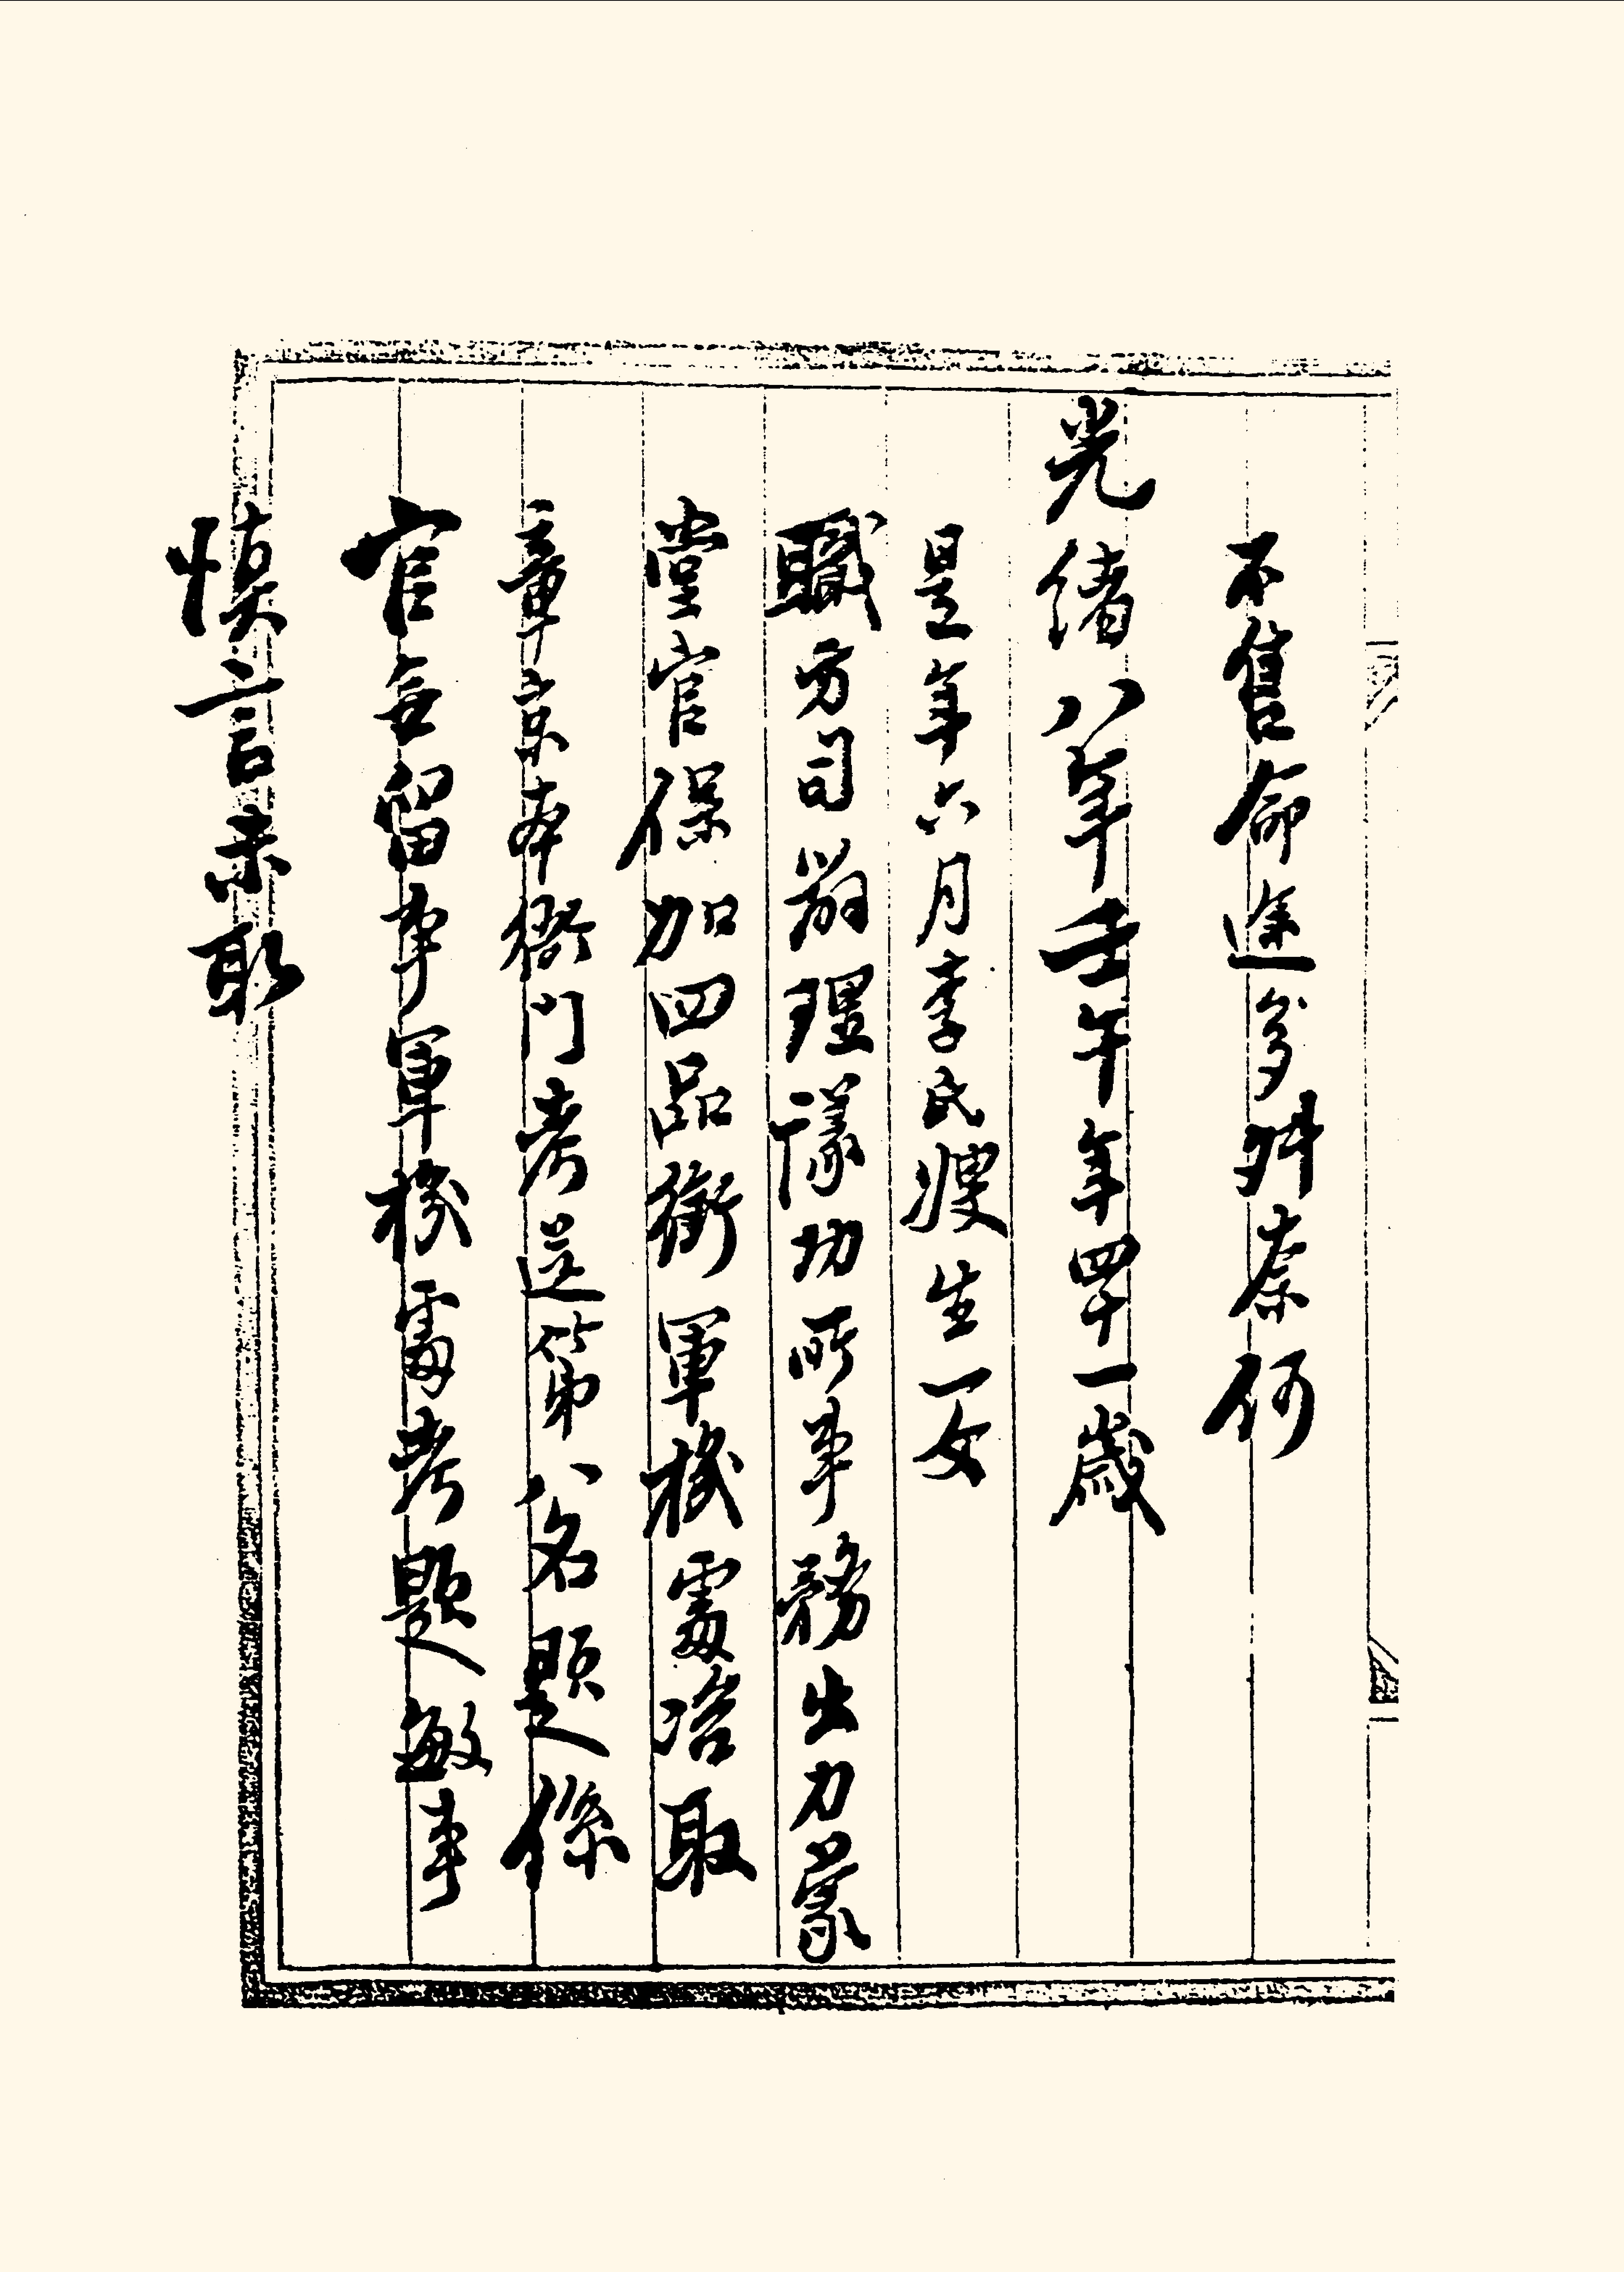 不售命途多舛奈何
光緒八年壬午年四十一歲
是年六月李氏嫂生一女
職方司辦理議功所事務出力蒙
堂官保加四品銜軍機處洽取
章京本衙門考送第八名題係
官無留事軍機處考題敏事
慎言未取